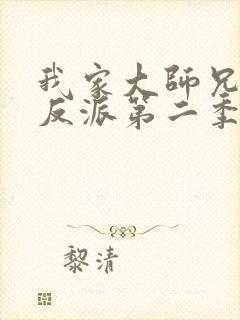 我家大師兄
反派第二季
黎清